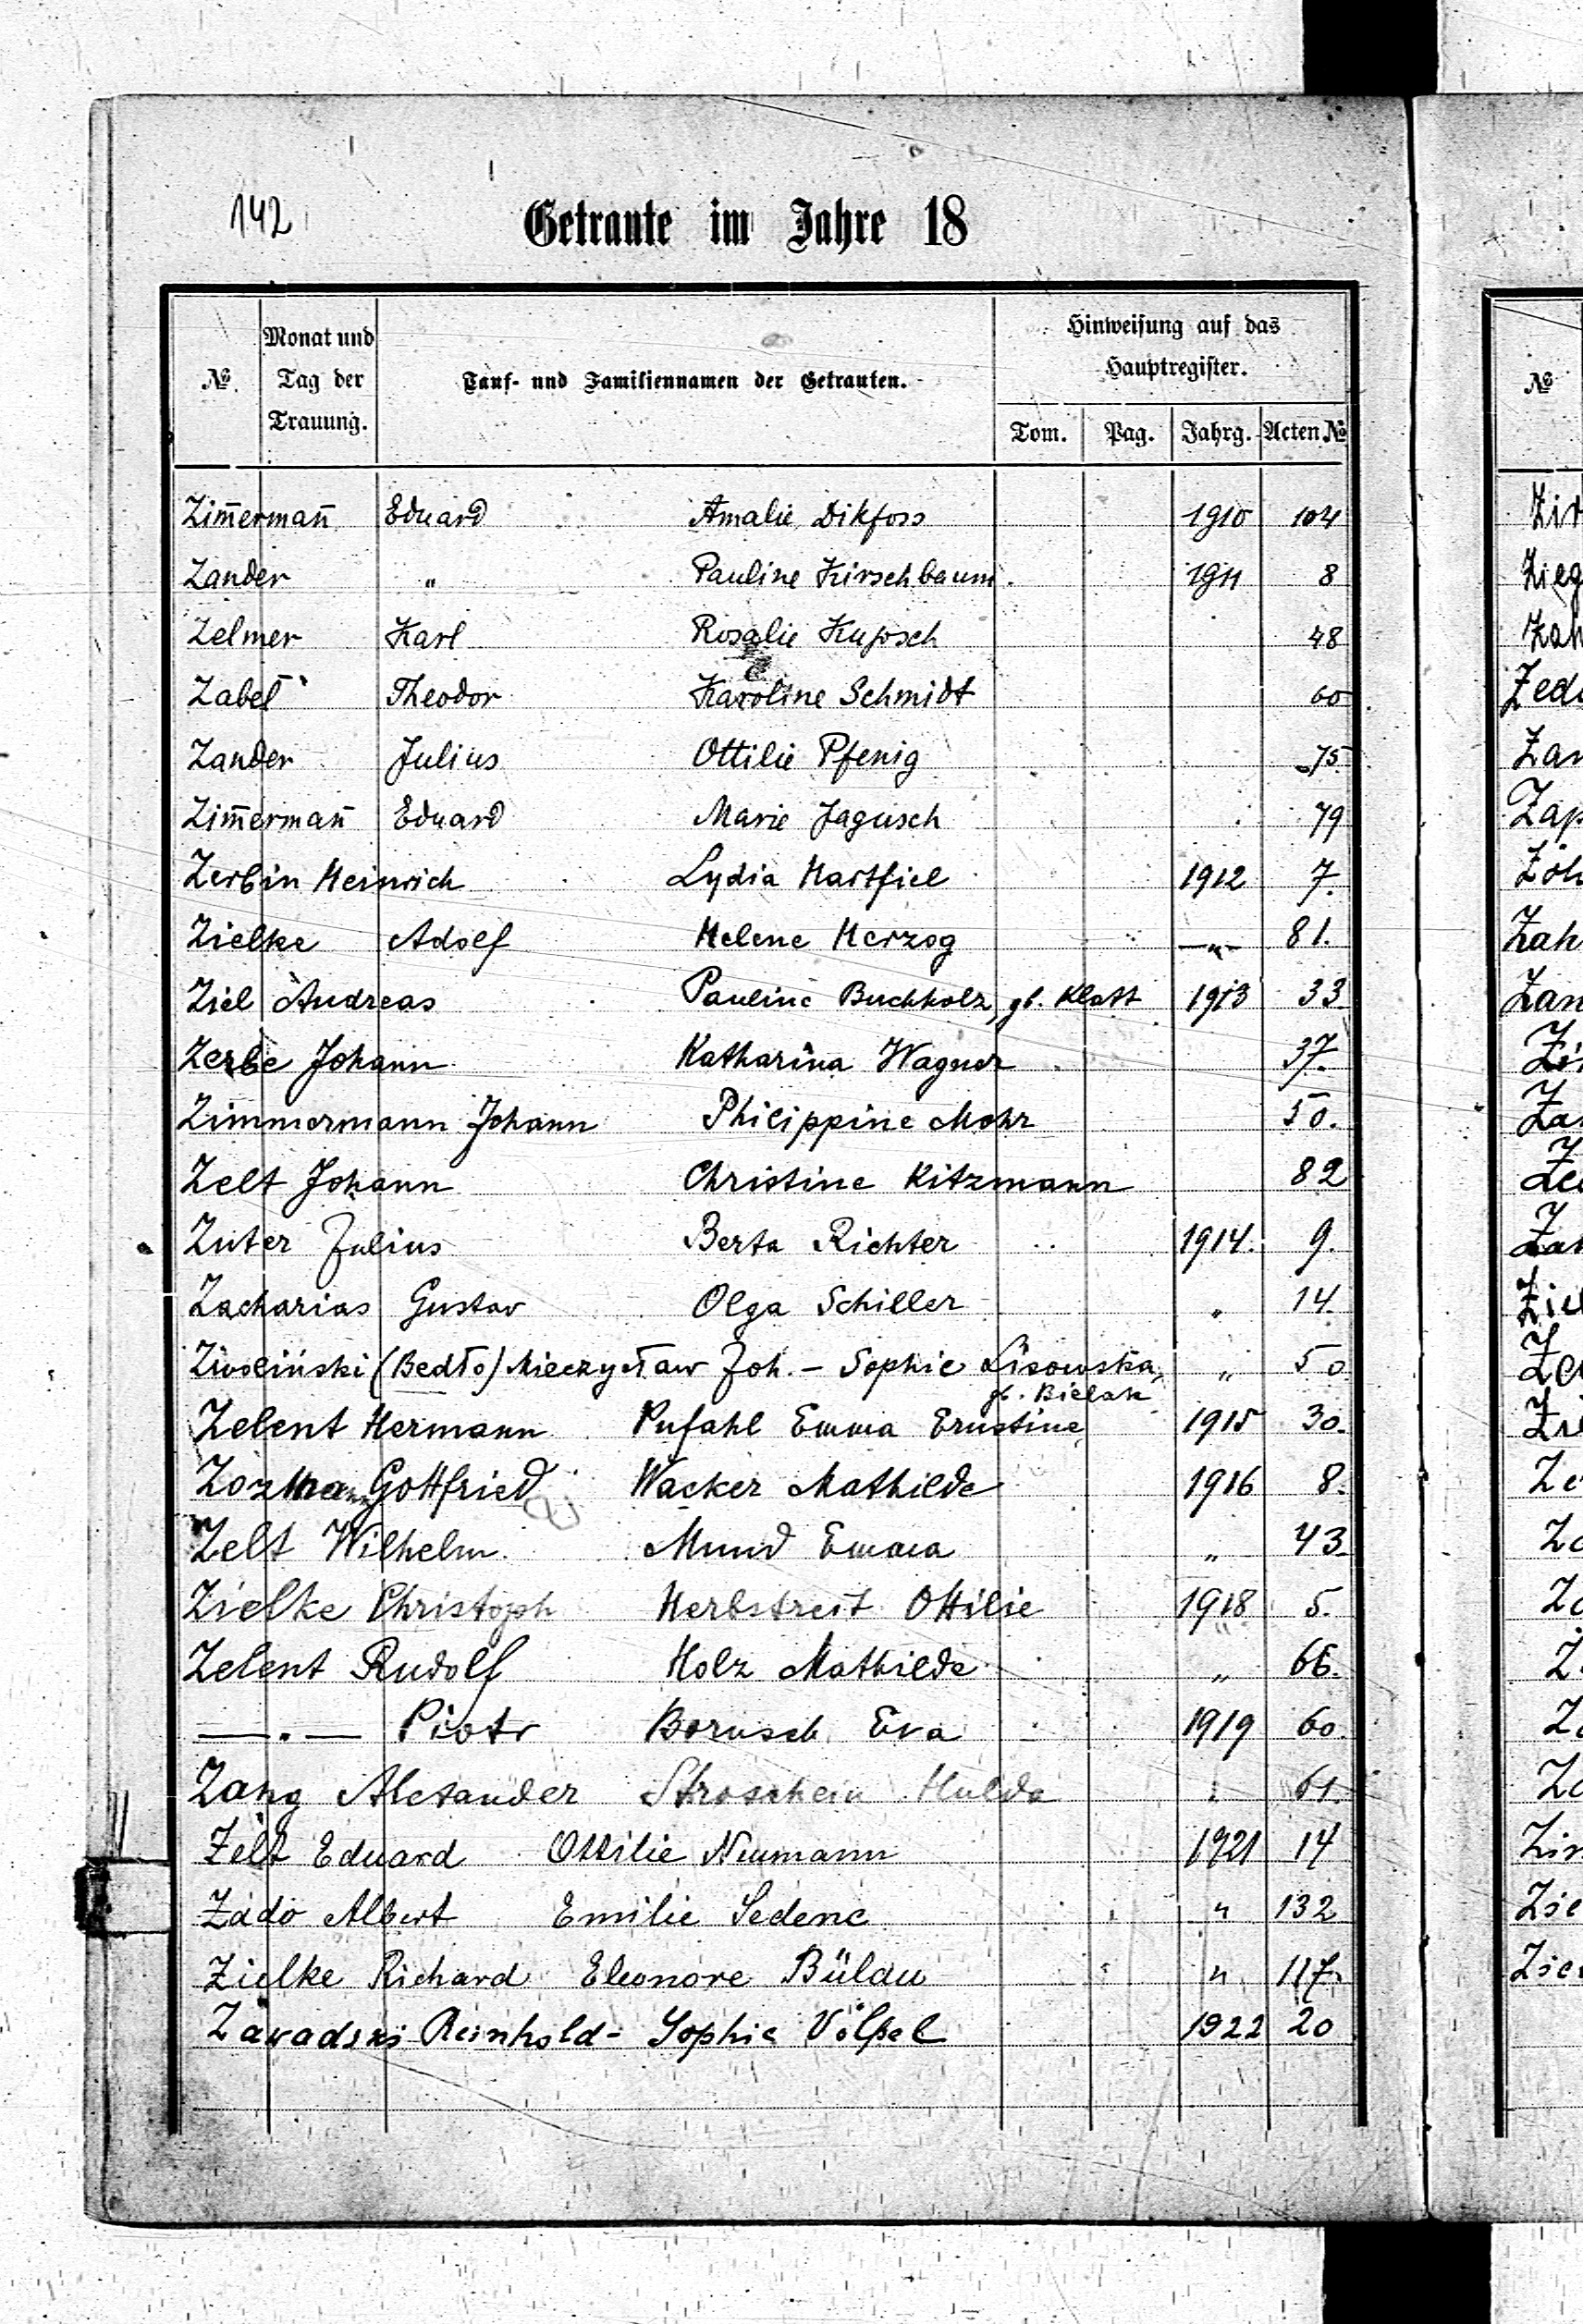 142
Getraute im Jahre 18
№. Monat und Tag der Trauung. Tauf- und Familiennamen der Getrauten. Hinweisung auf das Hauptregister.
Tom. Pag. Jahrg. Acten №
Zim̄erman̄ Eduard Amalie Dikfoss 1910 104
Zander " Pauline Kirschbaum 1911 8
Zelmer Karl Rosalie Kupsch 48
Zabel Theodor Karoline Schmidt 60
Zander Julius Ottilie Pfenig 75
Zim̄erman̄ Eduard Marie Jagusch 79
Zerbin Heinrich Lydia Hartfiel 1912 7.
Zielke Adolf Helene Herzog —"— 81.
Ziel Andreas Pauline Buchholz, gb. Klatt 1913 33
Zerbe Johann Katharina Wagner 37.
Zimmermann Johann Philippine Mohr 50.
Zelt Johann Christine Kitzmann 82
Zuter Julius Berta Richter 1914. 9.
Zacharias Gustav Olga Schiller " 14.
(Bedło) Mieczysław Joh. - Sophie Lisowska, " 50
gb. Bielak
Zelent Hermann Pufahl Emma Ernstine 1915 30.
Gottfried Wacker Mathilde 1916 8.
Zelt Wilhelm Mund Emma " 43.
Zielke Christoph Herbstreit Ottilie 1918 5.
Zelent Rudolf Holz Mathilde " 66.
—.— Piotr Borusch Eva 1919 60.
Zang Alexander Stroschein Hulda 61.
Zelt Eduard Ottilie Neumann 1921 14
Zado Albert Emilie Sedenc " 132
Zielke Richard Eleonore Bülau " 117.
Zawadski Reinhold - Sophie Völpel 1922 20
№